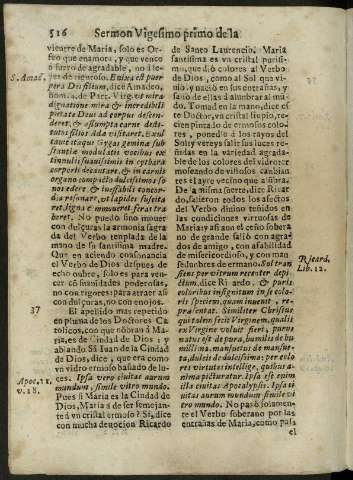 516 Sermon Vigesimo primo de la
vientre de Maria, solo es Or-
feo que enamora, y que vence
à fuerce de agradable, no à fuer-
çes de rigoroso.
S. Amad.
Enixa est puer-
pera Dei filium, dice Amadeo,
hom. 4. de Part. Virg. et mira
dignatione mira & incredibili
pietate Deus ad corpus descen-
deret, & assumpta carne desti-
tutos filios Adæ visitaret. Exul-
tauit itaque
substantiæ modulatis vocibus ex
tinnulis suauissimis in cythara
corporis decantare, & in carnis
organo compacto dulcissimos so-
nos edere & inessabili concor-
dia resonare, ut lapides suscita
ret, ligna commoueret feras tra
heret. No puedo sino mouer
con dulçuras la armonia sagra
da del Verbo templada de la
mano de su santissima madre.
Que en aciendo consonancia
el Verbo de Dios despues de
echo onbre, solo es para ven-
cer cō suauidades poderosas,
no con rigores para atraer asi
con dulçuras, no con enojos.
37
El apellido mas repetido
en pluma de los Doctores Ca
tolicos, con què nōbran à Ma-
ria, es de Ciudad de Dios: y
abiando Sā Iuan de la Ciudad
de Dios, dice, que era como
vn vidro ermoso bañado de lu-
ces.
Apoc. 21.
v. 18.
Ipsa vero ciuitas aurum
mundum, simile vitro mundo.
Pues si Maria es la Ciudad de
Dios, Maria à de ser semejan-
te à vn cristal ermoso? Si, dice
con mucha deuocion Ricardo
de Santo Laurencio. Maria
santissima es vn cristal purisi-
mo, que diò colores al Verbo
de Dios, como al Sol que vi-
no, y naciò en sus entrañas, y
saliò de ellas à alumbrar al mū-
do. Tomad en la mano, dice es
te Doctor, vn cristal lipio, re-
cien pintado de ermosos colo-
res, ponedlo à los rayos del
Sol, y vereys salir sus luces re-
ñidas en la variedad agrada-
ble de los colores del vidro: er
moleando de vistosos cambian
tes el ayre vecino que assista.
De la misma suerte, dice Ricar
do, salieron todos los afectos
del Verbo diuino teñidos en
las condiciones virtuosas de
Maria: y asi aun el ceño sobera
no de grande saliò con agra-
dos de amigo, con afabilidad
de misericordioso, y con man
sedumbres de ermano.
Ricard.
Lib. 12.
Sol tran
siens per vitrum recenter depi-
ctum, dice Ricardo, & pariē
coloribus insignitum in se colo-
ris speciem, quam inuenit, re-
præsentat. Similiter Christus
qui talem fecit Virginem, qualis
ex Virgine voluit fieri, purus
natus est de pura, humilis de hu
millima, mansuetus de mansue-
ta, dulcis de dulcissima: per colo
res virtutes intellige, quibus a-
nima picturatur. Ipsa est enim
illa ciuitas Apocalypsis. Ipsa ci
uitas aurum mundum simile vi
tro mundo. No pasò solamen-
te el Verbo soberano por las
entrañas de Maria, como pasa
el